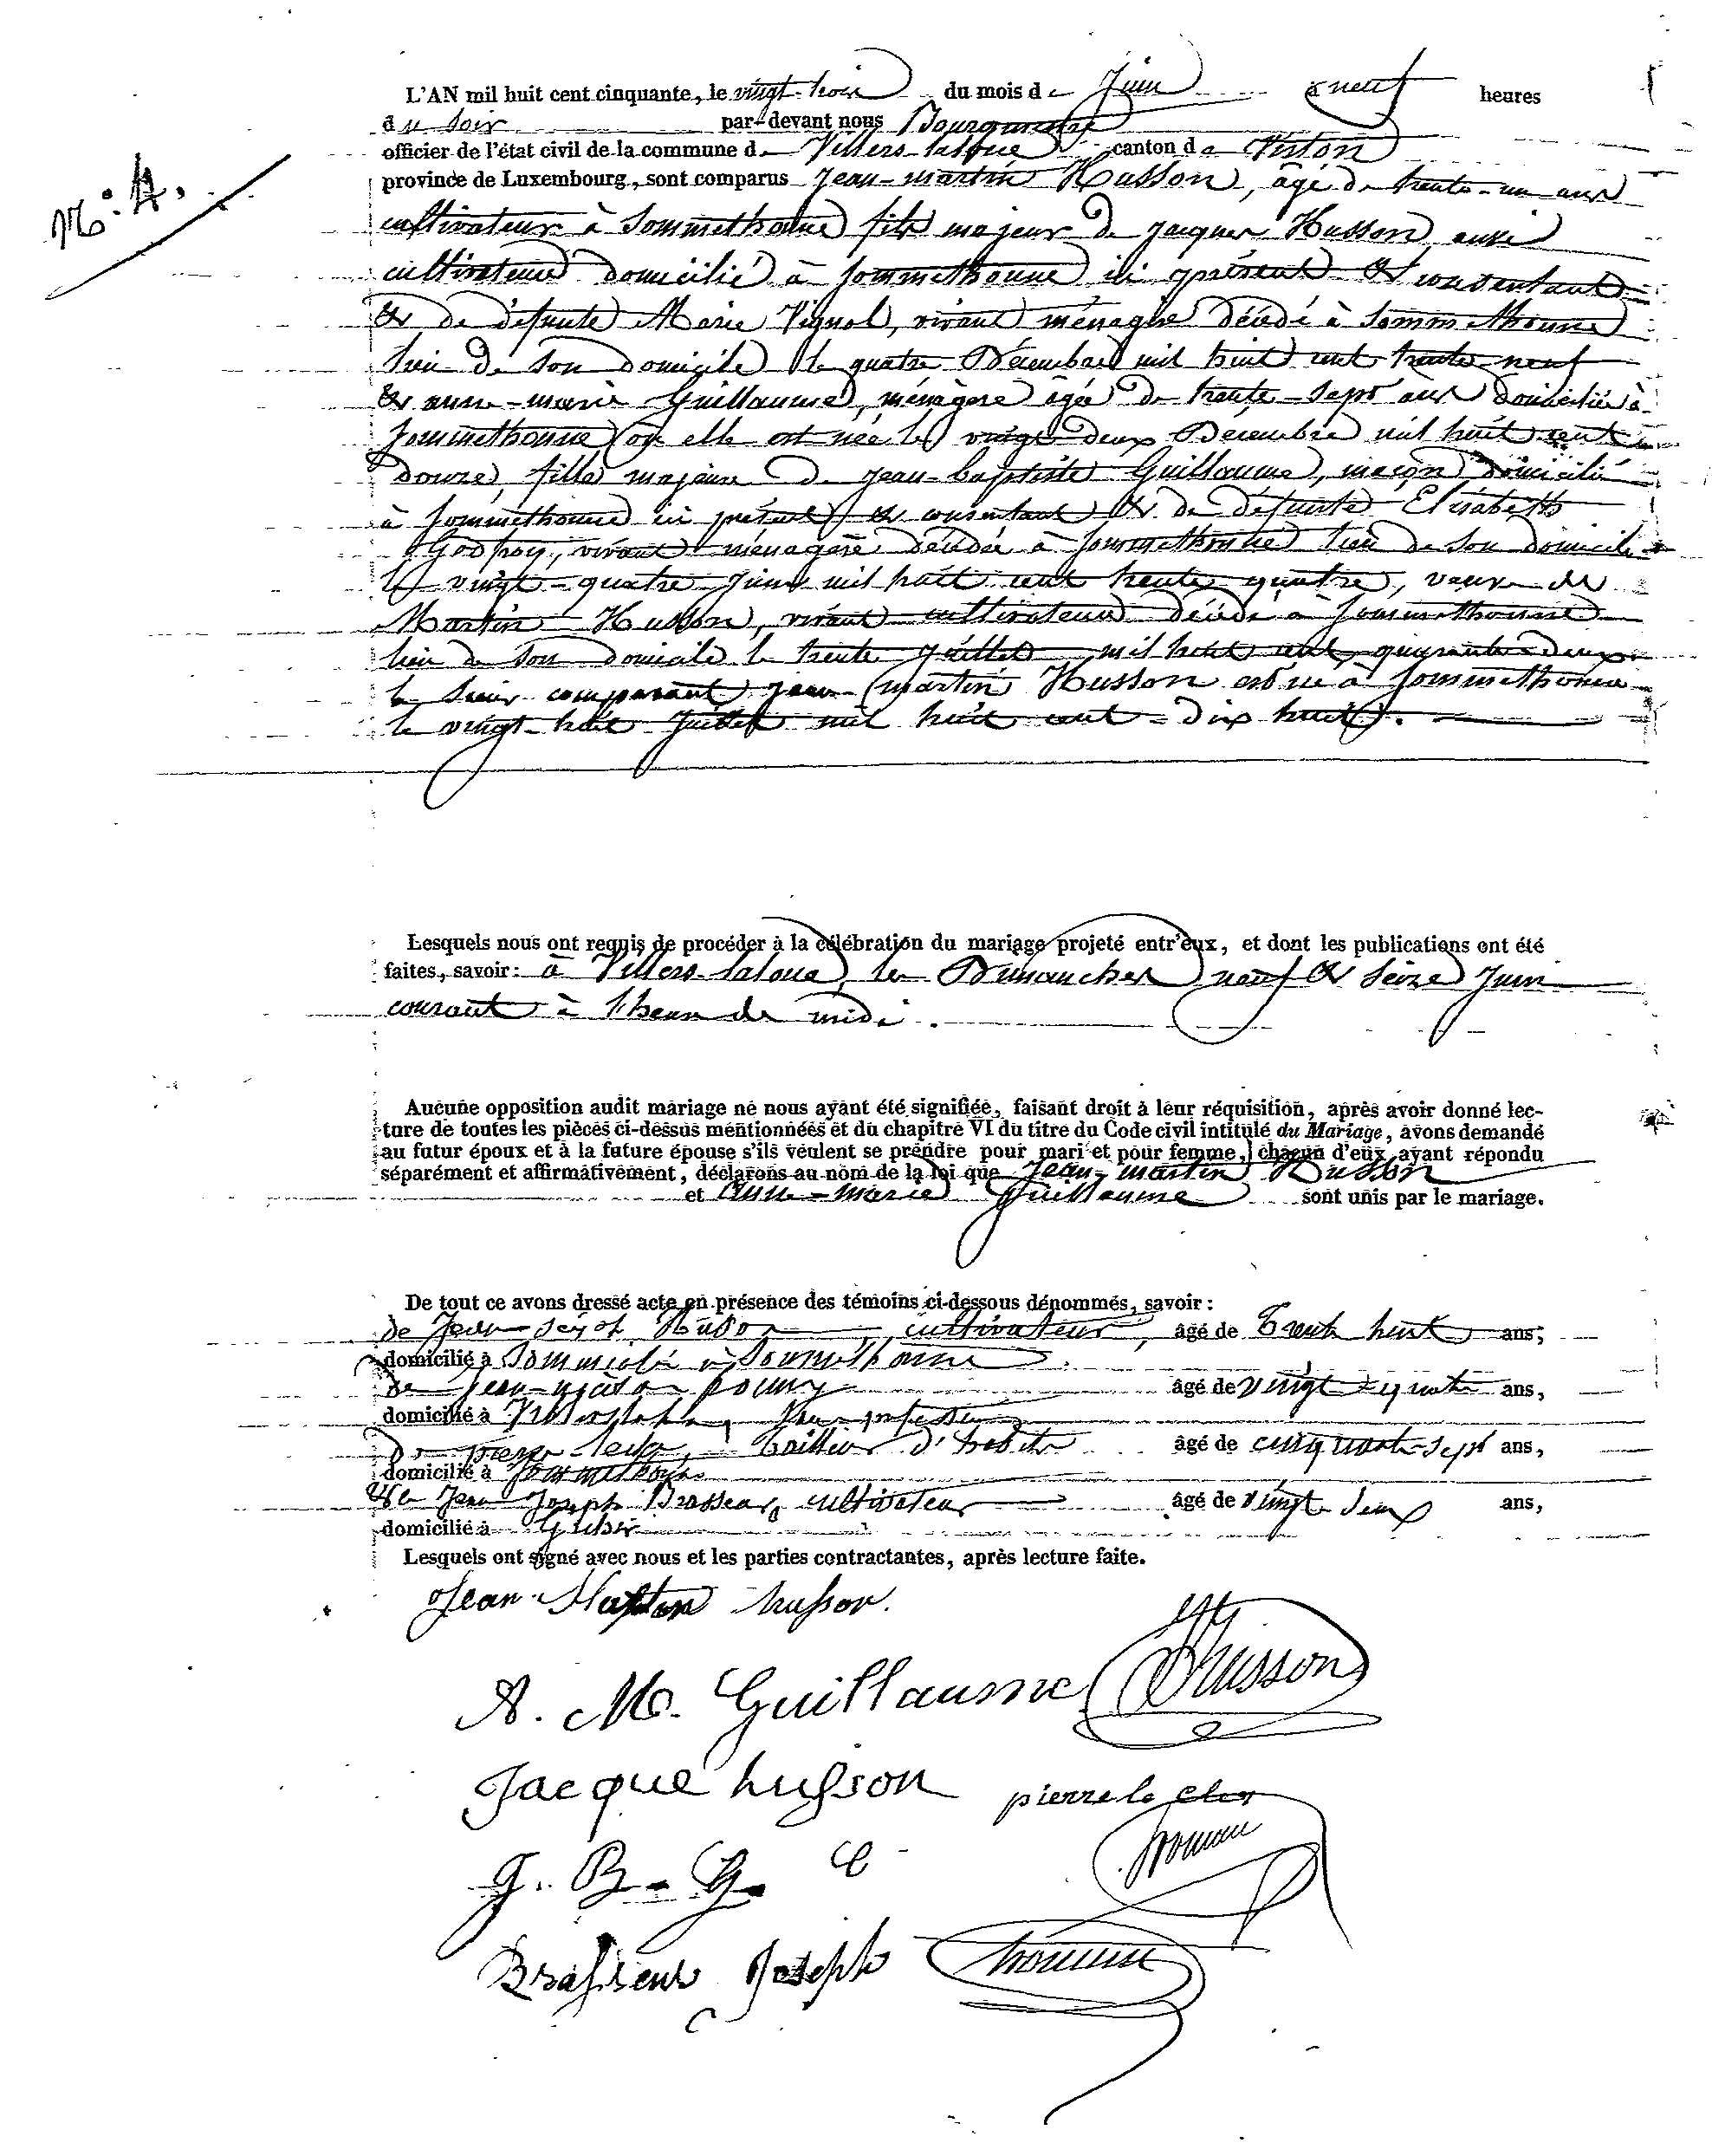 M. A.
L'AN mil huit cent cinquante, le vingt-trois du mois de Juin à neuf heures
du soir par-devant nous Bourgmestre
officier de l'état civil de la commune de Villers-laloue canton de Virton
province de Luxembourg, sont comparus Jean-martin Husson, âgé de trente-un ans
cultivateur à Sommethonne fils majeur de Jacques Husson aussi
cultivateur domicilié à Sommethonne ici présent & consentant
& de défunte Marie Vignol, vivant ménagère décédé à Sommethonne
lieu de son domicile le quatre Décembre mil huit cent trente-neuf
& anne-marie Guillaume, ménagère âgée de trente-sept ans domiciliée à
Sommethonne où elle est née le vingt-deux Décembre mil huit cent
douze, fille majeure de Jean-baptiste Guillaume, maçon domicilié
à Sommethonne ici présent & consentant & de défunte Elisabeth
Godfroy, vivant ménagère décédée à Sommethonne lieu de son domicile
le vingt-quatre Juin mil huit cent trente quatre, veuve de
Martin Husson, vivant cultivateur décédé à Sommethonne
lieu de son domicile le trente Juillet mil huit cent quarante-deux
le sieur comparant Jean-martin Husson est né à Sommethonne
le vingt-huit Juillet mil huit cent-dix huit.
Lesquels nous ont requis de procéder à la célébration du mariage projeté entr'eux, et dont les publications ont été
faites, savoir: à Villers-laloue, les Dimanches neuf & seize Juin
courant à l'heure de midi.
Aucune opposition audit mariage ne nous ayant été signifiée, faisant droit à leur réquisition, après avoir donné lec-
ture de toutes les pièces ci-dessus mentionnées et du chapitre VI du titre du Code civil intitulé du Mariage, avons demandé
au futur époux et à la future épouse s'ils veulent se prendre pour mari et pour femme, chacun d'eux ayant répondu
séparément et affirmativement, déclarons au nom de la loi que Jean-martin Husson
et Anne-marie Guillaume sont unis par le mariage.
De tout ce avons dressé acte en présence des témoins ci-dessous dénommés, savoir:
de Jean-Husson cultivateur, âgé de Trente huit ans;
domicilié à Sommethonne
de Jean- âgé de vingt-quatre ans,
domicilié à
de pierre âgé de cinquante-sept ans,
domicilié à Sommethonne
& de Jean Joseph Brasseur cultivateur âgé de vingt deux ans,
domicilié à
Lesquels ont signé avec nous et les parties contractantes, après lecture faite.
Jean Martin husson.
A. M. Guillaume Husson
Jacque husson pierre le
J. B. G.
Brasseur Joseph